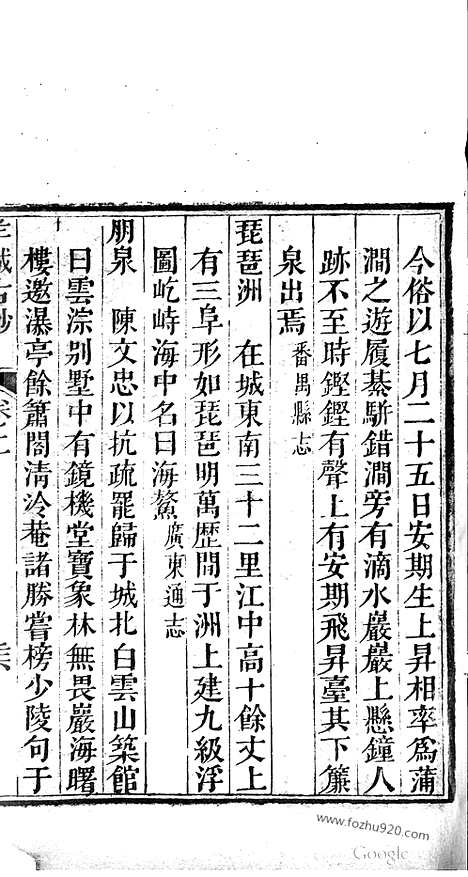 今俗以七月二十五日安期生上昇相率爲蒲
澗之遊履綦駢錯澗旁有滴水巖巖上懸鐘人
跡不至時鏗鏗有聲上有安期飛昇臺其下簾
泉出焉番禺縣志
琵琶洲 在城東南三十二里江中高十餘丈上
有三阜形如琵琶明萬歴間于洲上建九級浮
圖屹峙海中名曰海鰲廣東通志
朋泉 陳文忠以抗疏罷歸于城北白雲山築館
曰雲淙别墅中有鏡機堂寶象林無畏巖海曙
樓邀瀑亭餘簫閣淸冷菴諸勝嘗榜少陵句于
城古鈔 卷二
www.fozhu920.com
Google